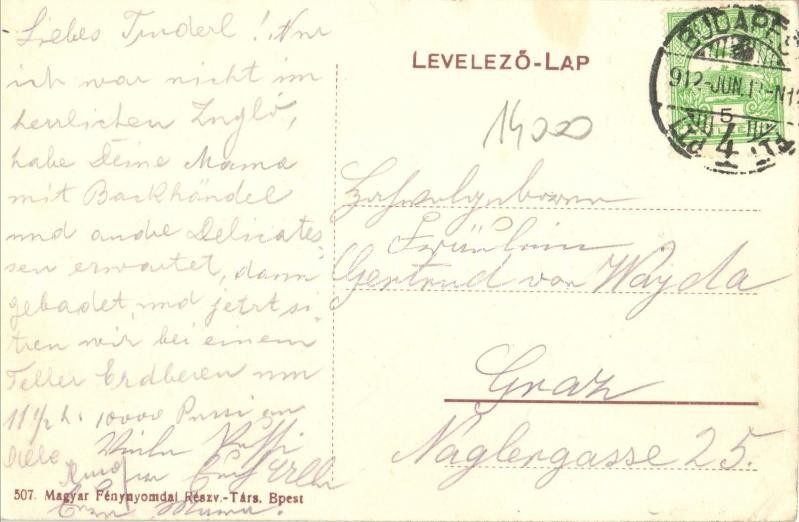 Liebes Truderl! Nur
ich war nicht im
herrlichen Zugló,
habe Deine Mama
mit Backhändel
und andre Delicates-
sen erwartet, dann
gebadet, und jetzt si-
tzen wir bei einem
Teller Erdberen um
11 1/2 h. 10000 Pussi an
Viele Pussi
Mama.
LEVELEZŐ-LAP
BUDAPEST
912-JUN.
5
4
14000
Hochwolgeboren
Fräulein
Gertrud von Wajda
Graz
Naglergasse 25.
507. Magyar Fénynyomdai Részv.-Társ. Bpest